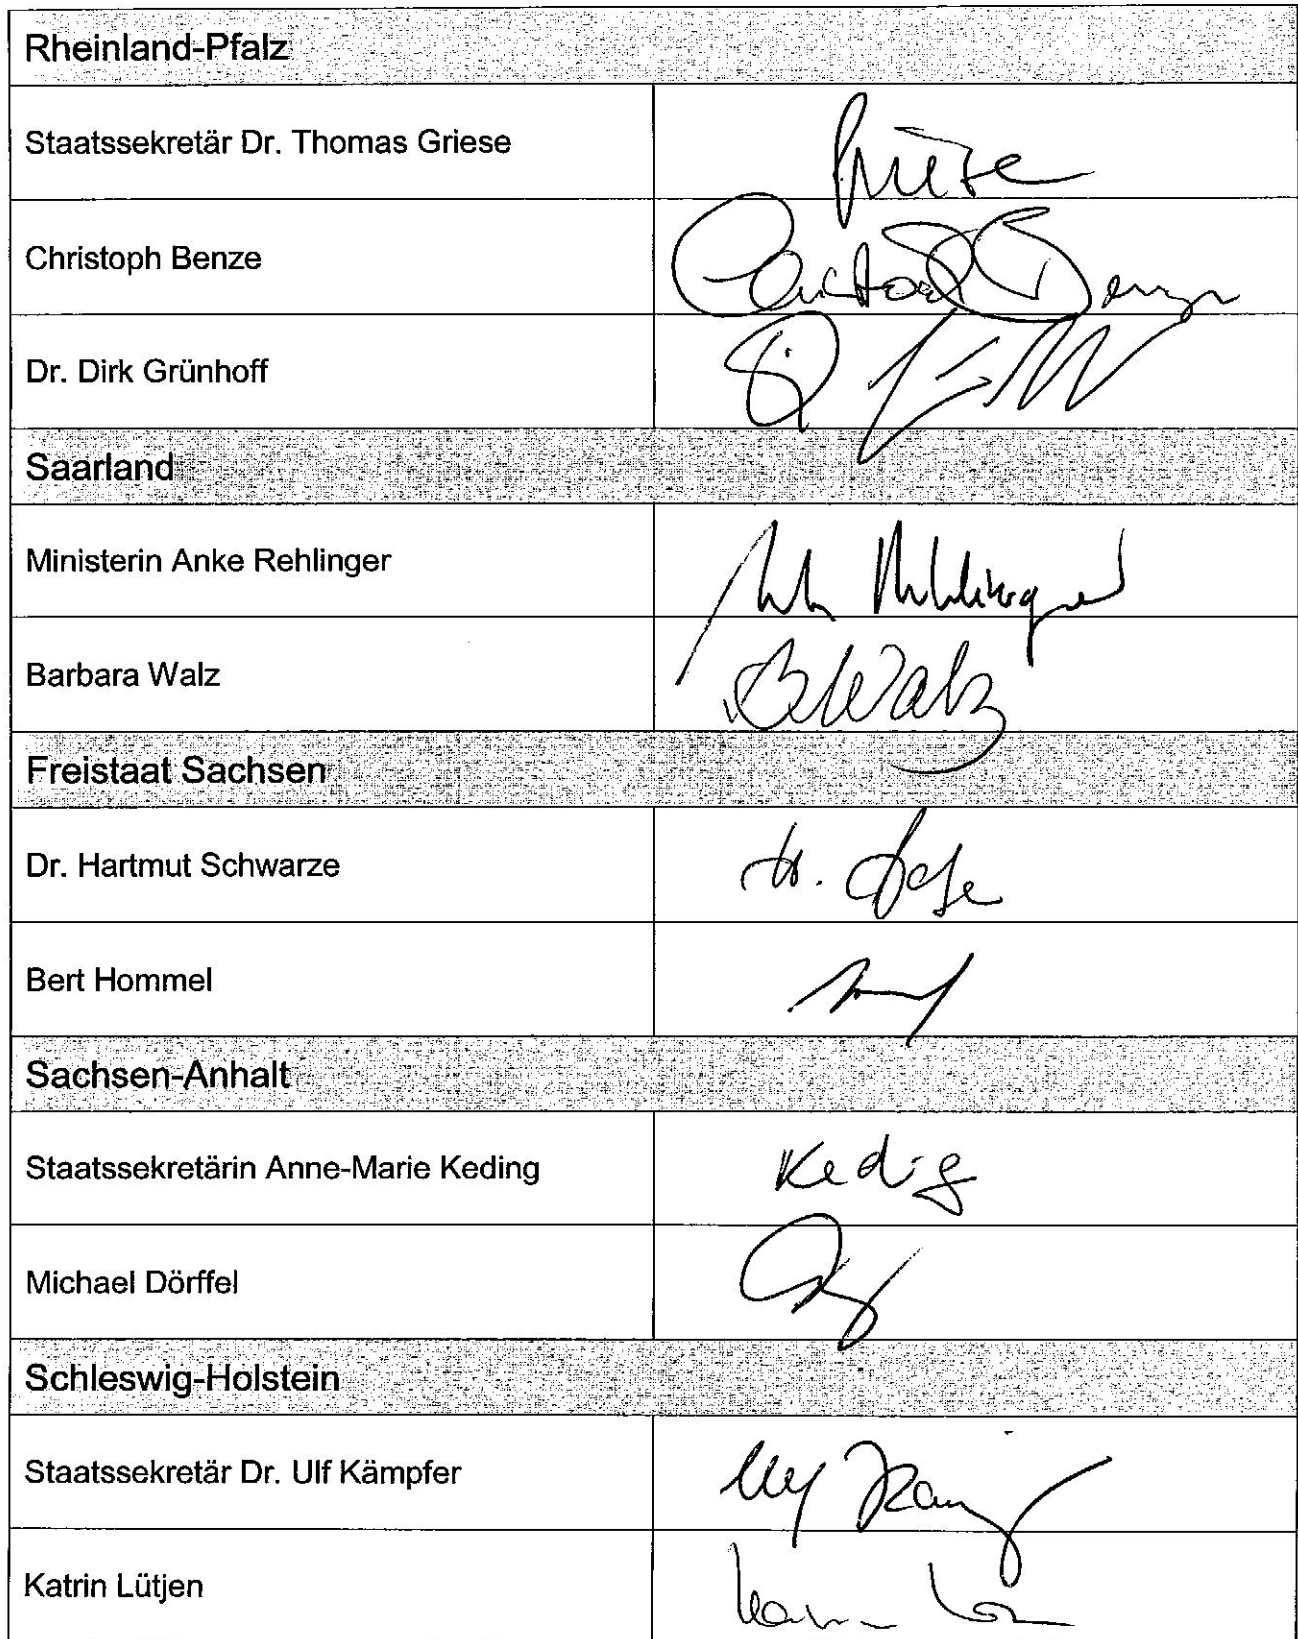 Rheinland-Pfalz
Staatssekretär Dr. Thomas Griese
Griese
Christoph Benze
Christoph Benze
Dr. Dirk Grünhoff
Saarland
Ministerin Anke Rehlinger
Anke Rehlinger
Barbara Walz
B. Walz
Freistaat Sachsen
Dr. Hartmut Schwarze
Bert Hommel
Sachsen-Anhalt
Staatssekretärin Anne-Marie Keding
Keding
Michael Dörffel
Schleswig-Holstein
Staatssekretär Dr. Ulf Kämpfer
Katrin Lütjen